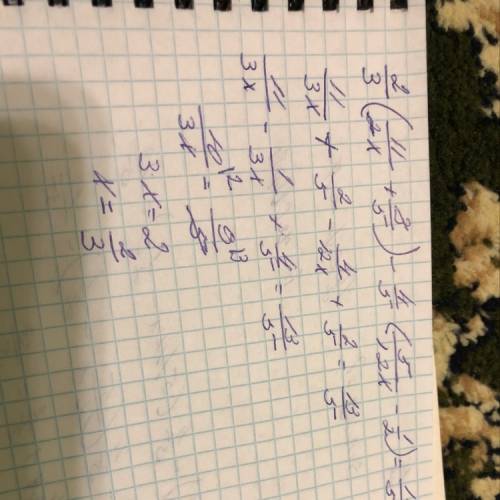 2/3 (11/2x + 3/5) - 4/5 (5/12x - 1/2) =
11/3x + 2/5 - 4/12x + 2/5 = 13/5
11/3x - 1/3x + 4/5 = 13/5
10/3x =
3x = 2
x = 2/3